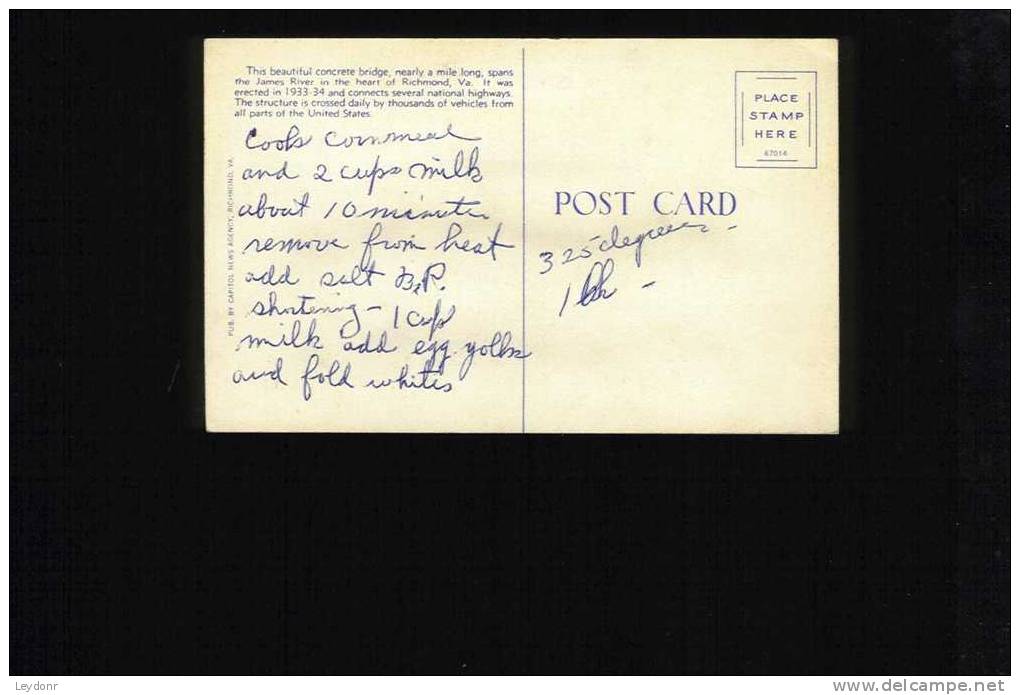 This beautiful concrete bridge, nearly a mile long, spans
the James River in the heart of Richmond, Va. It was
erected in 1933-34 and connects several national highways.
The structure is crossed daily by thousands of vehicles from
all parts of the United States.
Cook cornmeal
and 2 cups milk
about 10 minutes
remove from heat
add salt B.P.
shortening - 1 cup
milk add egg yolks
and fold whites
PUB. BY CAPITOL NEWS AGENCY, RICHMOND, VA.
PLACE
STAMP
HERE
67014
POST CARD
325 degrees -
1 hr -
Leydonr
delcampe.net